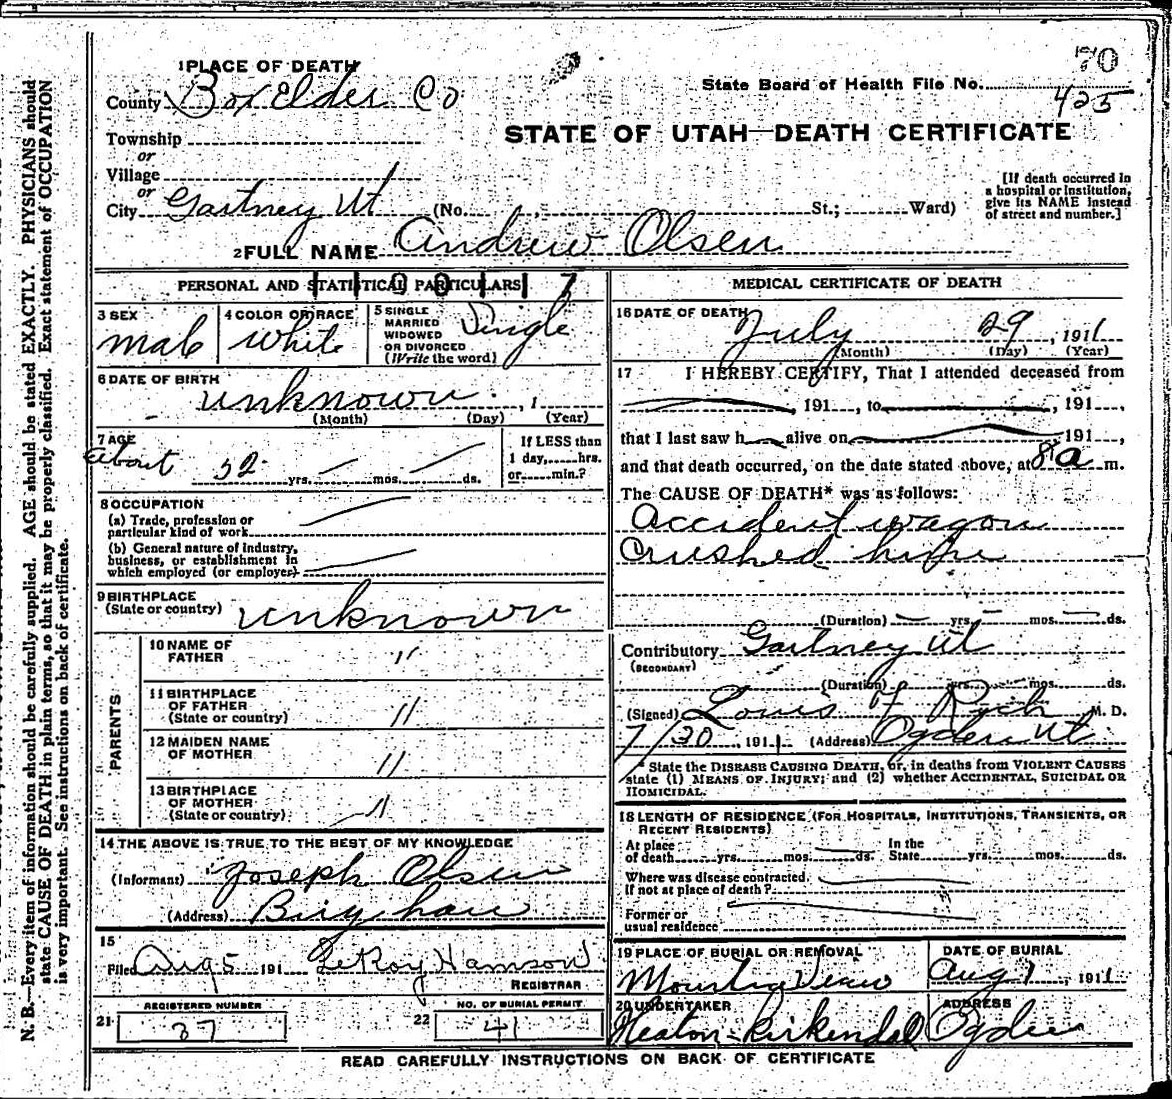 70
State Board of Health File No. 425
STATE OF UTAH—DEATH CERTIFICATE
1 PLACE OF DEATH
County Box Elder Co
Township
or
Village
or
City Gartney Ut (No. , St.; Ward)
[If death occurred in
a hospital or institution,
give its NAME instead
of street and number.]
2 FULL NAME Andrew Olsen
PERSONAL AND STATISTICAL PARTICULARS
3 SEX
male
4 COLOR OR RACE
White
5 SINGLE
MARRIED
WIDOWED
OR DIVORCED
(Write the word)
Single
6 DATE OF BIRTH
unknown , 1
(Month) (Day) (Year)
7 AGE
about 52 yrs. mos. ds.
If LESS than
1 day, hrs.
or min.?
8 OCCUPATION
(a) Trade, profession or
particular kind of work
(b) General nature of industry,
business, or establishment in
which employed (or employer)
9 BIRTHPLACE
(State or country) unknown
PARENTS
10 NAME OF
FATHER "
11 BIRTHPLACE
OF FATHER
(State or country) "
12 MAIDEN NAME
OF MOTHER "
13 BIRTHPLACE
OF MOTHER
(State or country) "
14 THE ABOVE IS TRUE TO THE BEST OF MY KNOWLEDGE
(Informant) Joseph Olsen
(Address) Brigham
15
Filed Aug 5 191 LeRoy Hamson
REGISTRAR
REGISTERED NUMBER
21 37
NO. OF BURIAL PERMIT
22 41
MEDICAL CERTIFICATE OF DEATH
16 DATE OF DEATH
July 29, 1911
(Month) (Day) (Year)
17 I HEREBY CERTIFY, That I attended deceased from
, 191 , to , 191 ,
that I last saw h alive on 191 ,
and that death occurred, on the date stated above, at 8 a m.
The CAUSE OF DEATH* was as follows:
Accident wagon
Crushed
(Duration) yrs. mos. ds.
Contributory Gartney Ut
(SECONDARY)
(Duration) yrs. mos. ds.
(Signed) Louis F M. D.
7/30, 1911 (Address) Ogden Ut
* State the DISEASE CAUSING DEATH, or, in deaths from VIOLENT CAUSES
state (1) MEANS OF INJURY; and (2) whether ACCIDENTAL, SUICIDAL OR
HOMICIDAL.
18 LENGTH OF RESIDENCE (FOR HOSPITALS, INSTITUTIONS, TRANSIENTS, OR
RECENT RESIDENTS)
At place
of death yrs. mos. ds. In the
State yrs. mos. ds.
Where was disease contracted.
If not at place of death?
Former or
usual residence
19 PLACE OF BURIAL OR REMOVAL
DATE OF BURIAL
Aug 1, 1911
20 UNDERTAKER
Heaton-Kirkendal
ADDRESS
Ogden
READ CAREFULLY INSTRUCTIONS ON BACK OF CERTIFICATE
N. B.—Every item of information should be carefully supplied. AGE should be stated EXACTLY. PHYSICIANS should
state CAUSE OF DEATH in plain terms, so that it may be properly classified. Exact statement of OCCUPATION
is very important. See instructions on back of certificate.